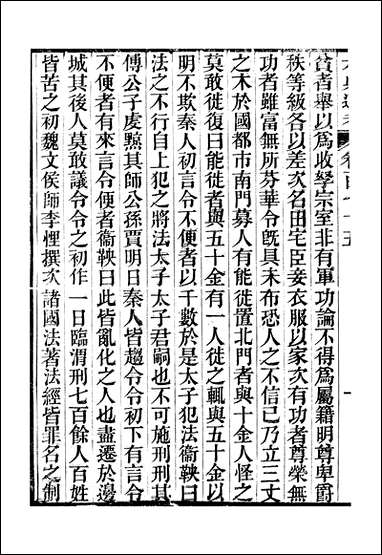 貧者舉以爲收孥宗室非有軍功論不得爲屬籍明尊卑爵
秩等級各以差次名田宅臣妾衣服以家次有功者尊榮無
功者雖富無所芬華令既具未布恐人之不信己乃立三丈
之木於國都市南門募人有能徙置北門者與十金人怪之
莫敢徙復曰能徙者與五十金有一人徙之輒與五十金以
明不欺秦人初言令不便者以千數於是太子犯法衞鞅曰
法之不行自上犯之將法太子太子君嗣也不可施刑刑其
傅公子虔黥其師公孫賈明日秦人皆趨令令初下有言令
不便者有來言令便者衞鞅曰此皆亂化之人也盡遷於邊
城其後人莫敢議令令之初作一日臨渭刑七百餘人百姓
皆苦之初魏文侯師李悝撰次諸國法著法經皆罪名之制